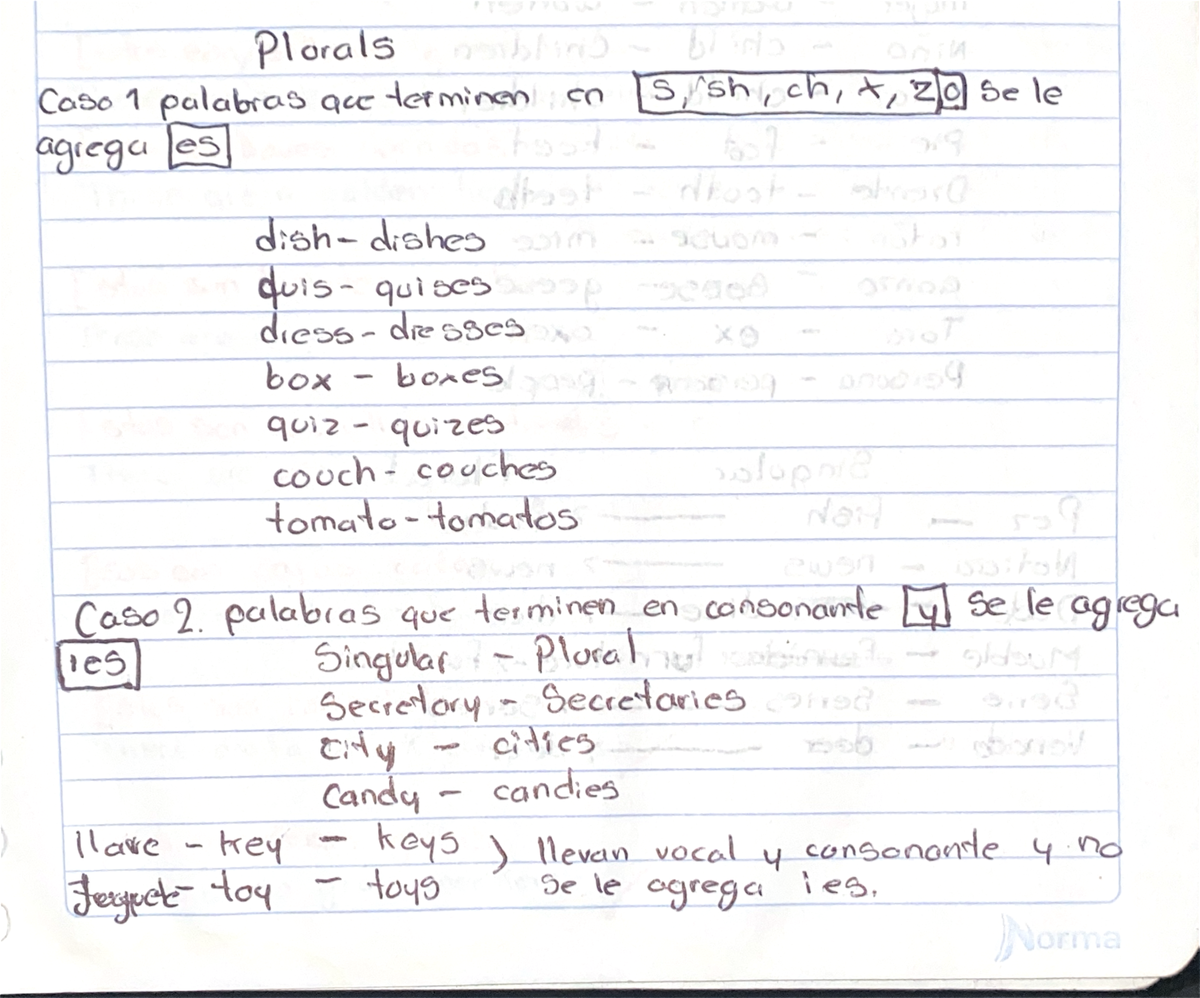 Plorals
Caso 1 palabras que terminen en s, sh, ch, x, z, o se le
agrega es
dish - dishes
quis - quises
dress - dresses
box - boxes
quiz - quizes
couch - couches
tomato - tomatos
Caso 2. palabras que terminen en consonante y se le agrega
ies
Singular - Plural
Secretory - Secretaries
City - cities
Candy - candies
llave - key - keys ) llevan vocal y consonante y no
toy - toys se le agrega ies.
Norma